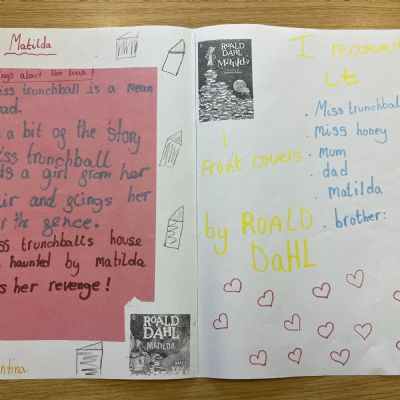 Matilda
ngs about the book!
iss trunchball is a mean
ad.
a bit og the story
iss trunchball
ds a girl grom her
ir and glings her
r the gence.
ss trunchballs house
haunted by Matilda
s her revenge!
ROALD
DAHL
MATILDA
ntina.
ROALD
DAHL
Matilda
I recomend
it
Front covers
by ROALD
DaHL
. Miss trunchball
. miss honey
. mum
. dad
. matilda
. brother: